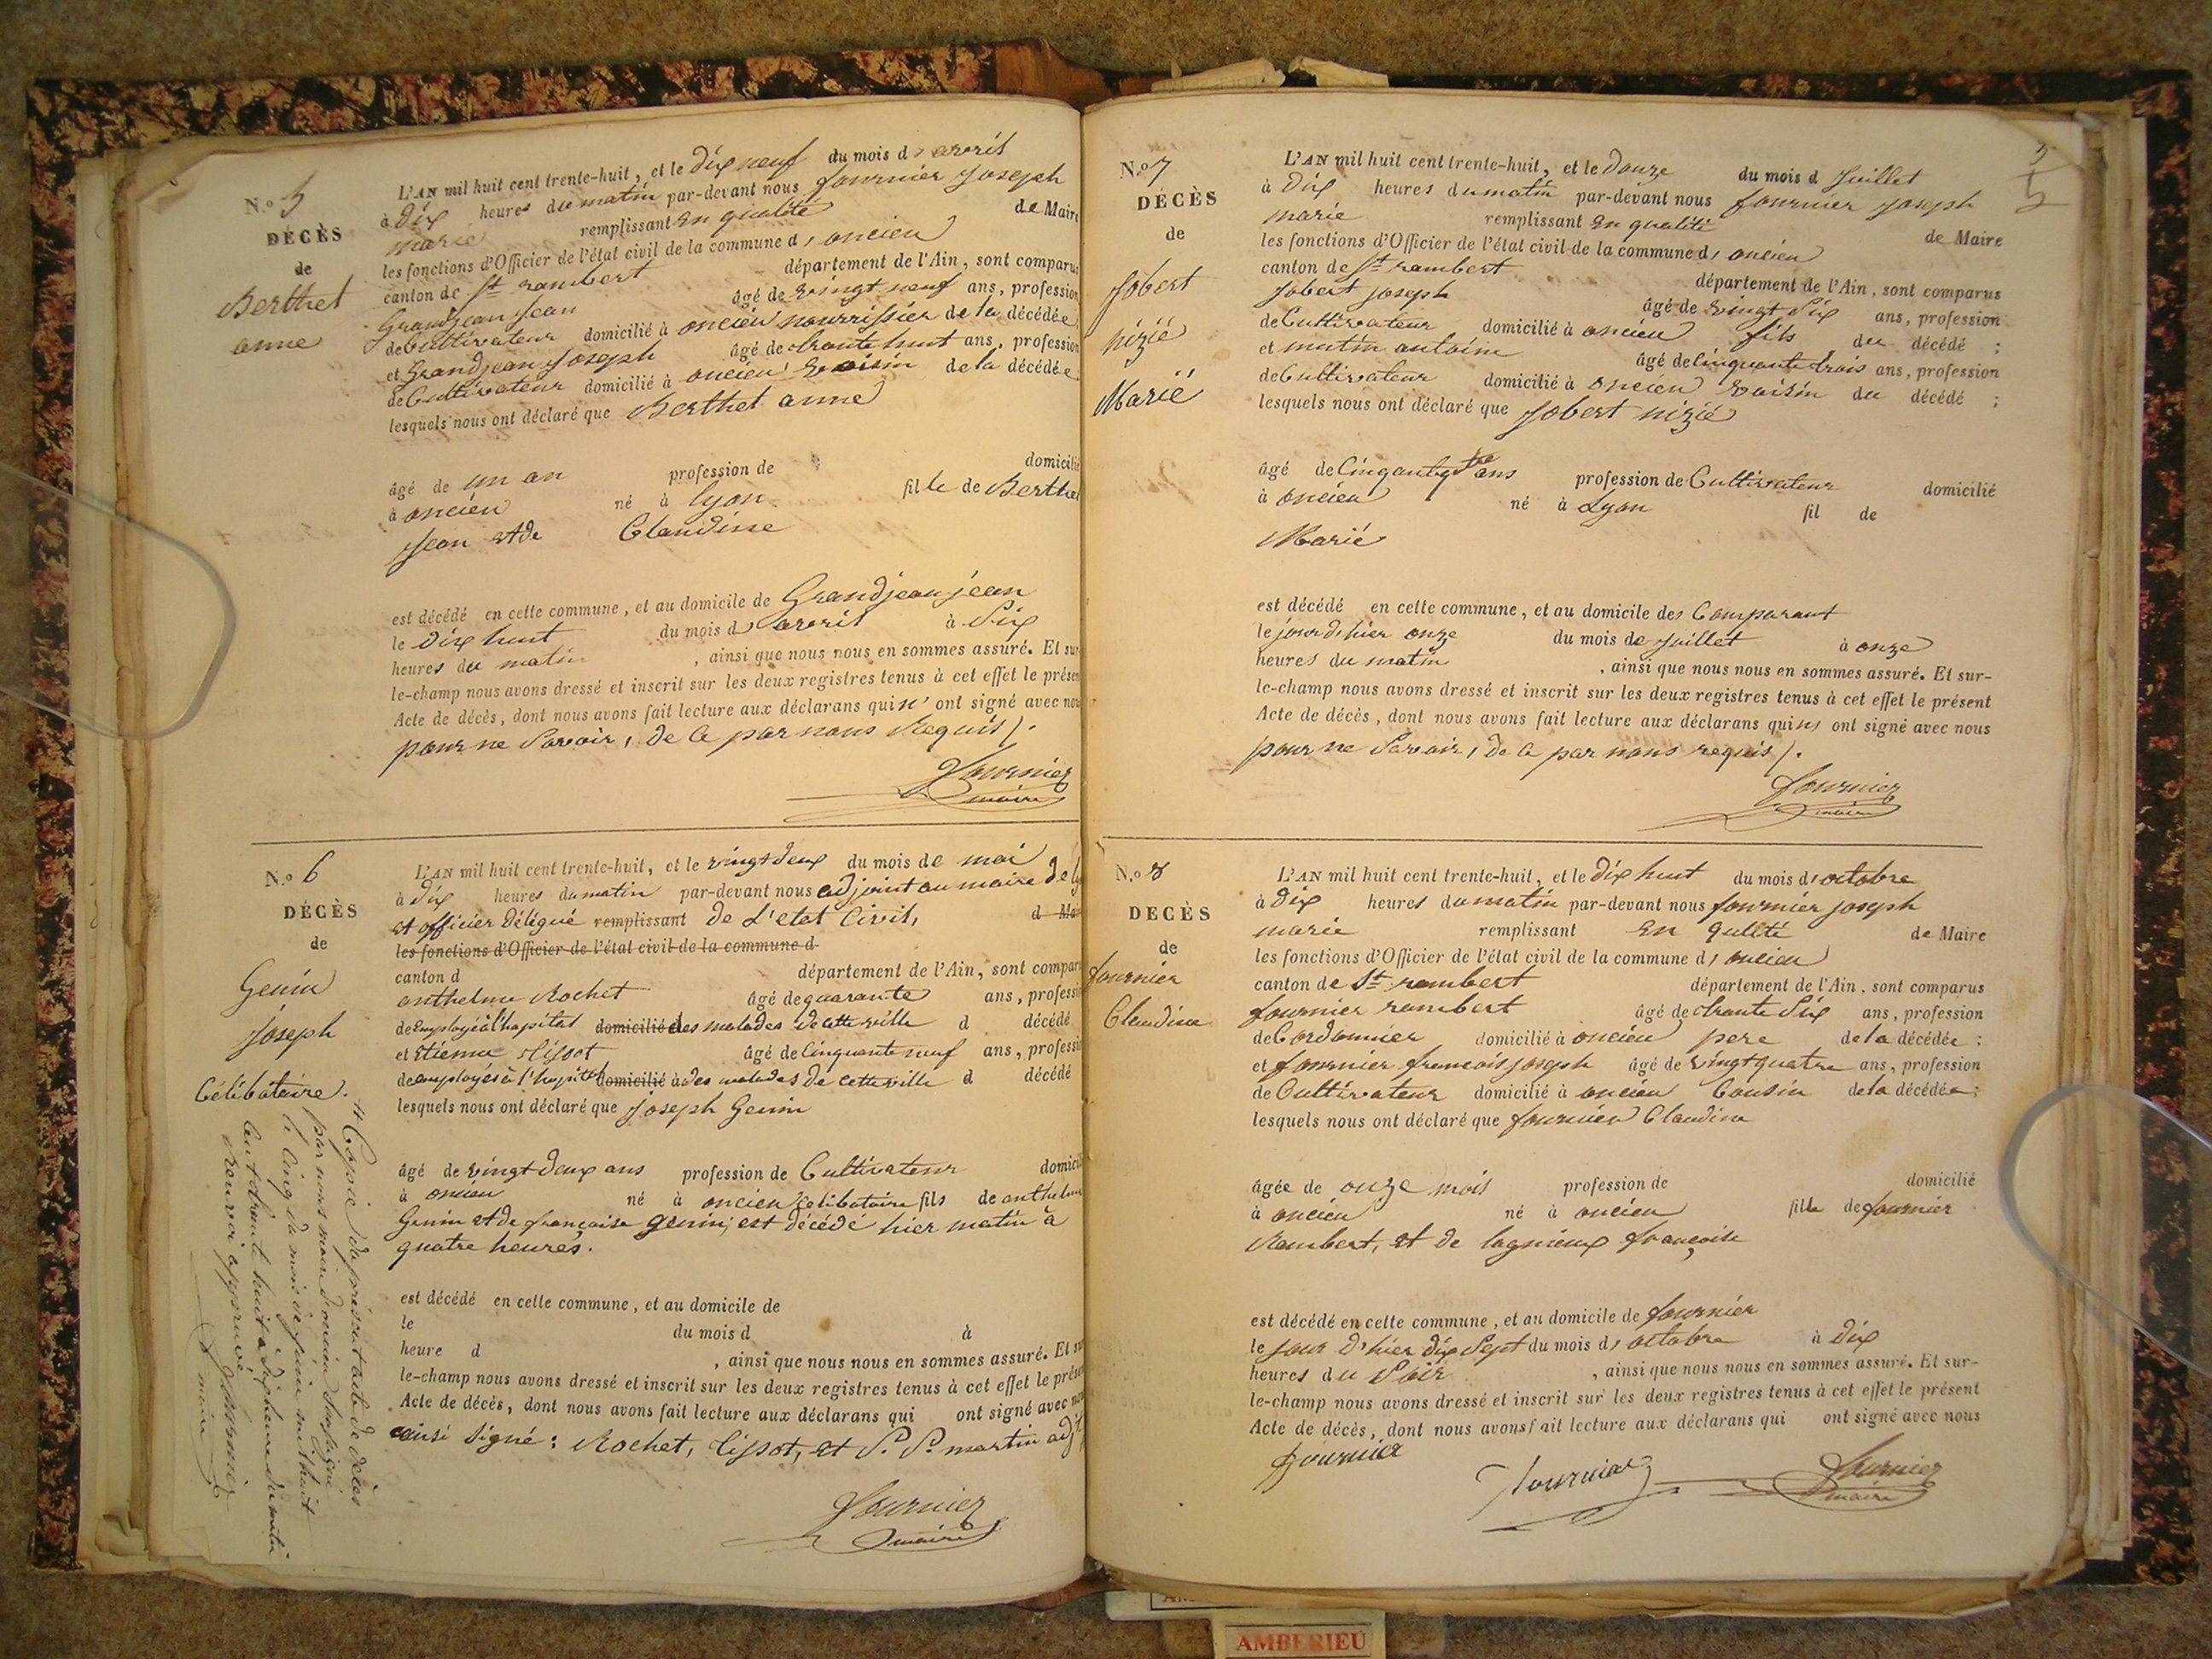 N.o 5
DÉCÈS
de
Berthet
anne
L'AN mil huit cent trente-huit, et le dix neuf du mois d'avril
à dix heures du matin par-devant nous fournier Joseph
marie remplissant En qualité de Maire
les fonctions d'Officier de l'état civil de la commune d'oncieu
canton de St rambert département de l'Ain, sont comparus
Grandjean Jean âgé de vingt neuf ans, profession
de Cultivateur domicilié à oncieu nourrissier de la décédée
et Grandjean Joseph âgé de trante huit ans, profession
de Cultivateur domicilié à oncieu voisin de la décédée
lesquels nous ont déclaré que Berthet anne
âgé de un an profession de domicilié
à oncieu né à lyon fille de Berthet
Jean et de Claudine
est décédé en cette commune, et au domicile de Grandjean jean
le dix huit du mois d'avril à Six
heures du matin, ainsi que nous nous en sommes assuré. Et sur-
le-champ nous avons dressé et inscrit sur les deux registres tenus à cet effet le présent
Acte de décès, dont nous avons fait lecture aux déclarans qui n' ont signé avec nous
pour ne Savoir, de ce par nous Requis /.
Fournier
maire
N.o 6
DÉCÈS
de
Genin
Joseph
Célibataire.
L'AN mil huit cent trente-huit, et le vingt deux du mois de mai
à dix heures du matin par-devant nous adjoint au maire de
et officier délégué remplissant de L'etat Civil, d Ma
les fonctions d'Officier de l'état civil de la commune d
canton d département de l'Ain, sont comparus
anthelme Rochet âgé de quarante ans, profession
de Employé à l'hopital domicilié des malades de cette ville d décédé
et Etienne tissot âgé de Cinquante neuf ans, profession
de employés à l'hopital domicilié à des malades de cette ville d décédé
lesquels nous ont déclaré que Joseph Genin
âgé de vingt deux ans profession de Cultivateur domicilié
à oncieu né à oncieu Celibataire fils de anthelme
Genin et de françoise genin, est décédé hier matin à
quatre heures.
est décédé en cette commune, et au domicile de
le du mois d à
heure d, ainsi que nous nous en sommes assuré. Et sur-
le-champ nous avons dressé et inscrit sur les deux registres tenus à cet effet le présent
Acte de décès, dont nous avons fait lecture aux déclarans qui ont signé avec nous
ainsi Signé: Rochet, tissot, et P. martin adj
Fournier
maire
Copié du présent acte de décès
par nous maire d'oncieu Soussigné
le Cinq du mois de juin mil huit
cent trente huit à dix heures du matin
renvoi approuvé.
Fournier
maire
5
N.o 7
DÉCÈS
de
Jobert
nizié
Marié
L'AN mil huit cent trente-huit, et le douze du mois d Juillet
à Dix heures du matin par-devant nous fournier Joseph
marie remplissant En qualité de Maire
les fonctions d'Officier de l'état civil de la commune d'oncieu
canton de St rambert département de l'Ain, sont comparus
Jobert joseph âgé de vingt Six ans, profession
de Cultivateur domicilié à oncieu fils du décédé;
et mutin antoine âgé de Cinquante trois ans, profession
de Cultivateur domicilié à oncieu voisin du décédé;
lesquels nous ont déclaré que Jobert nizié
âgé de Cinquante ans profession de Cultivateur domicilié
à oncieu né à Lyon fil de
Marié
est décédé en cette commune, et au domicile des Comparant
le jour d'hier onze du mois de Juillet à onze
heures du matin, ainsi que nous nous en sommes assuré. Et sur-
le-champ nous avons dressé et inscrit sur les deux registres tenus à cet effet le présent
Acte de décès, dont nous avons fait lecture aux déclarans qui n' ont signé avec nous
pour ne Savoir, de ce par nous requis /.
Fournier
maire
N.o 8
DÉCÈS
de
fournier
Claudine
L'AN mil huit cent trente-huit, et le dix huit du mois d'octobre
à dix heures du matin par-devant nous fournier joseph
marie remplissant En qulité de Maire
les fonctions d'Officier de l'état civil de la commune d'oncieu
canton de St rambert département de l'Ain, sont comparus
fournier rambert âgé de trante Six ans, profession
de Cordonnier domicilié à oncieu pere de la décédée:
et fournier francois joseph âgé de vingt quatre ans, profession
de Cultivateur domicilié à oncieu Cousin de la décédée;
lesquels nous ont déclaré que fournier Claudine
âgée de onze mois profession de domicilié
à oncieu né à oncieu fille de fournier
Rambert, et de lagnieux françoise
est décédé en cette commune, et au domicile de fournier
le jour d'hier dix Sept du mois d'octobre à dix
heures du Soir, ainsi que nous nous en sommes assuré. Et sur-
le-champ nous avons dressé et inscrit sur les deux registres tenus à cet effet le présent
Acte de décès, dont nous avons fait lecture aux déclarans qui ont signé avec nous
fournier
Fournier
Fournier
maire
AMBERIEU